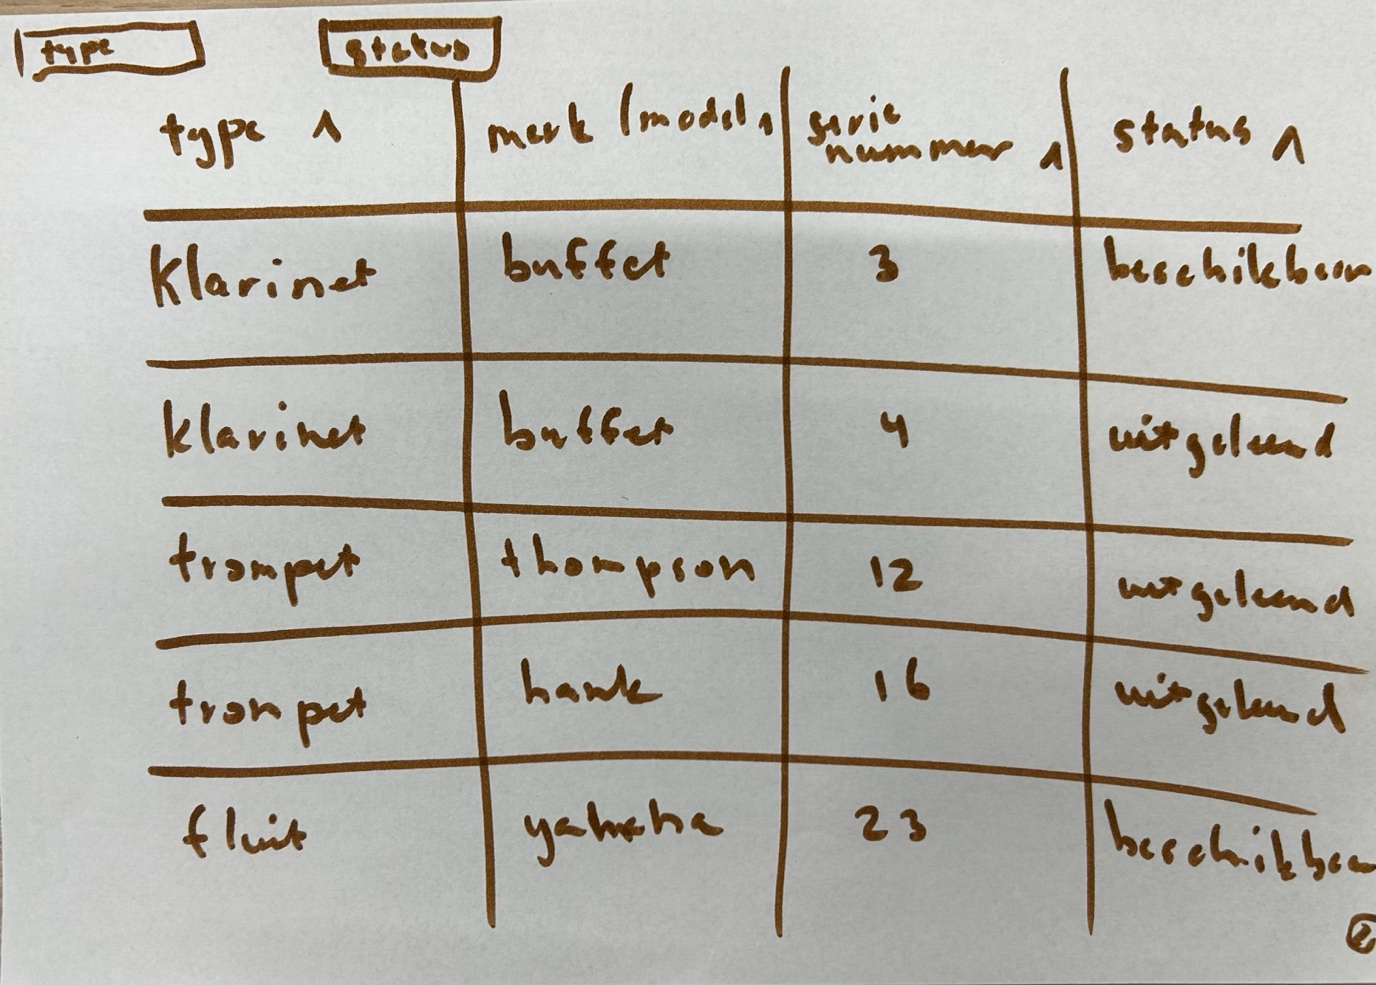 type status
type ^ merk / model ^ serie nummer ^ status ^
klarinet buffet 3 beschikbaar
klarinet buffet 4 uitgeleend
trompet thompson 12 uitgeleend
trompet hawk 16 uitgeleend
fluit yahaha 23 beschikbaar
2